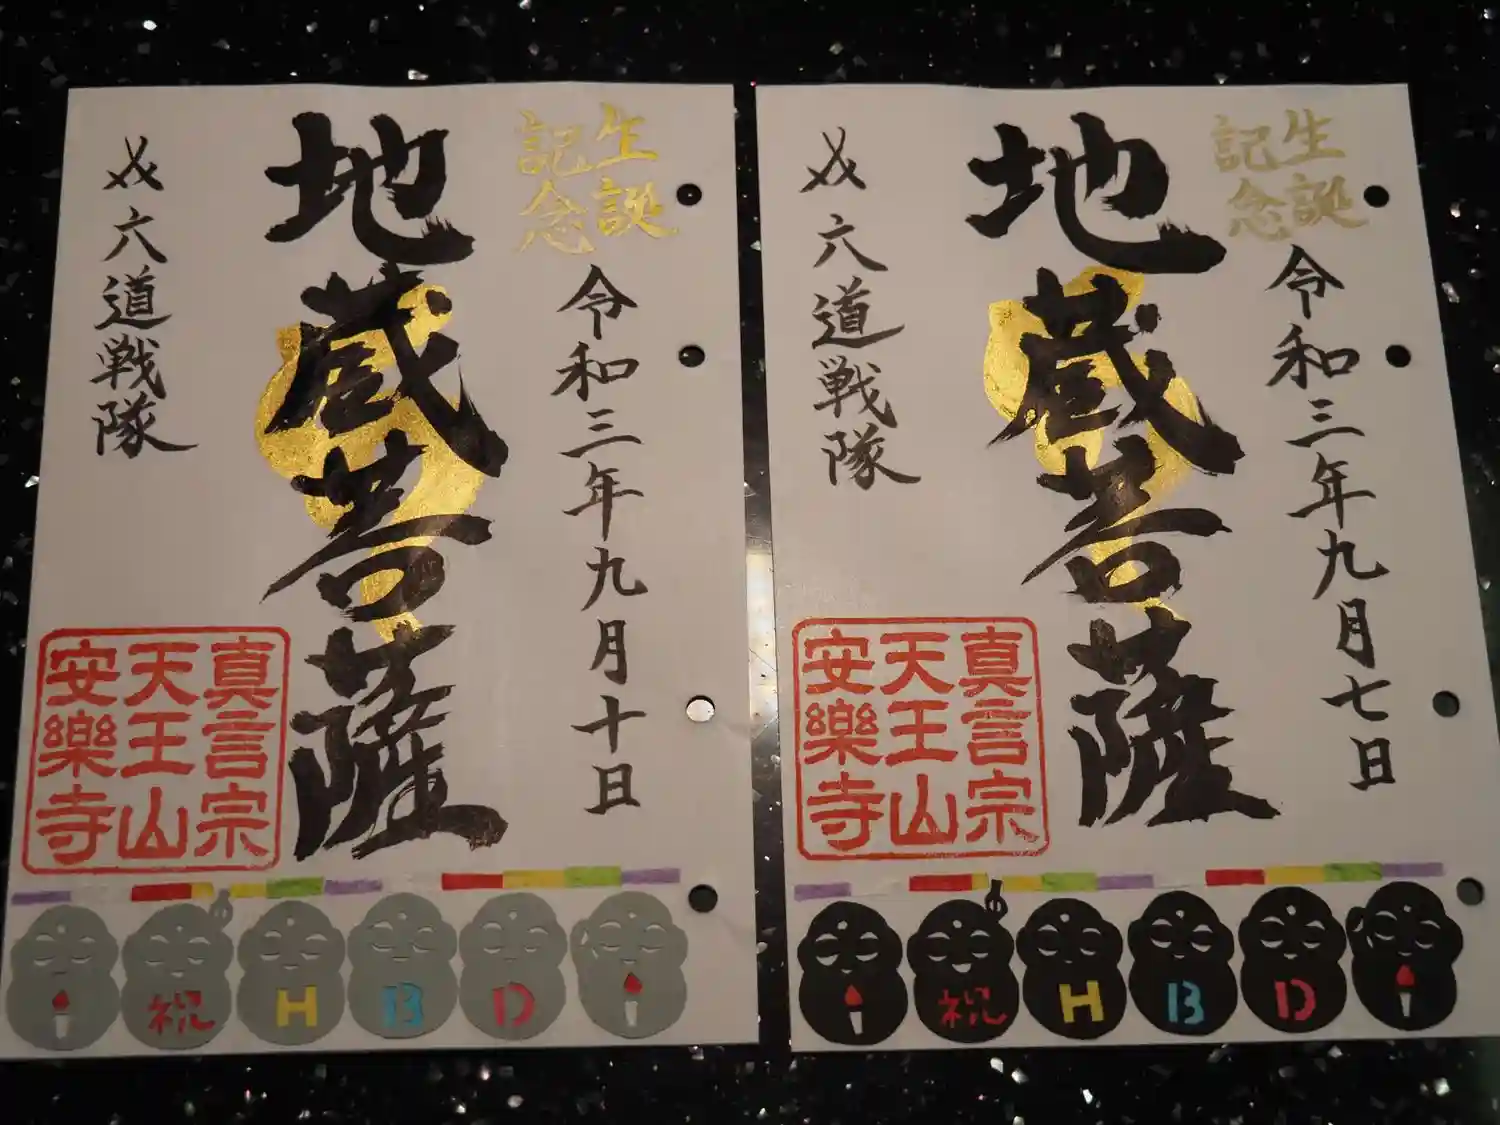 生誕
記念
令和三年九月十日
地蔵菩薩
〆六道戦隊
真言宗
天王山
安樂寺
祝HBD
生誕
記念
令和三年九月七日
地蔵菩薩
〆六道戦隊
真言宗
天王山
安樂寺
祝HBD